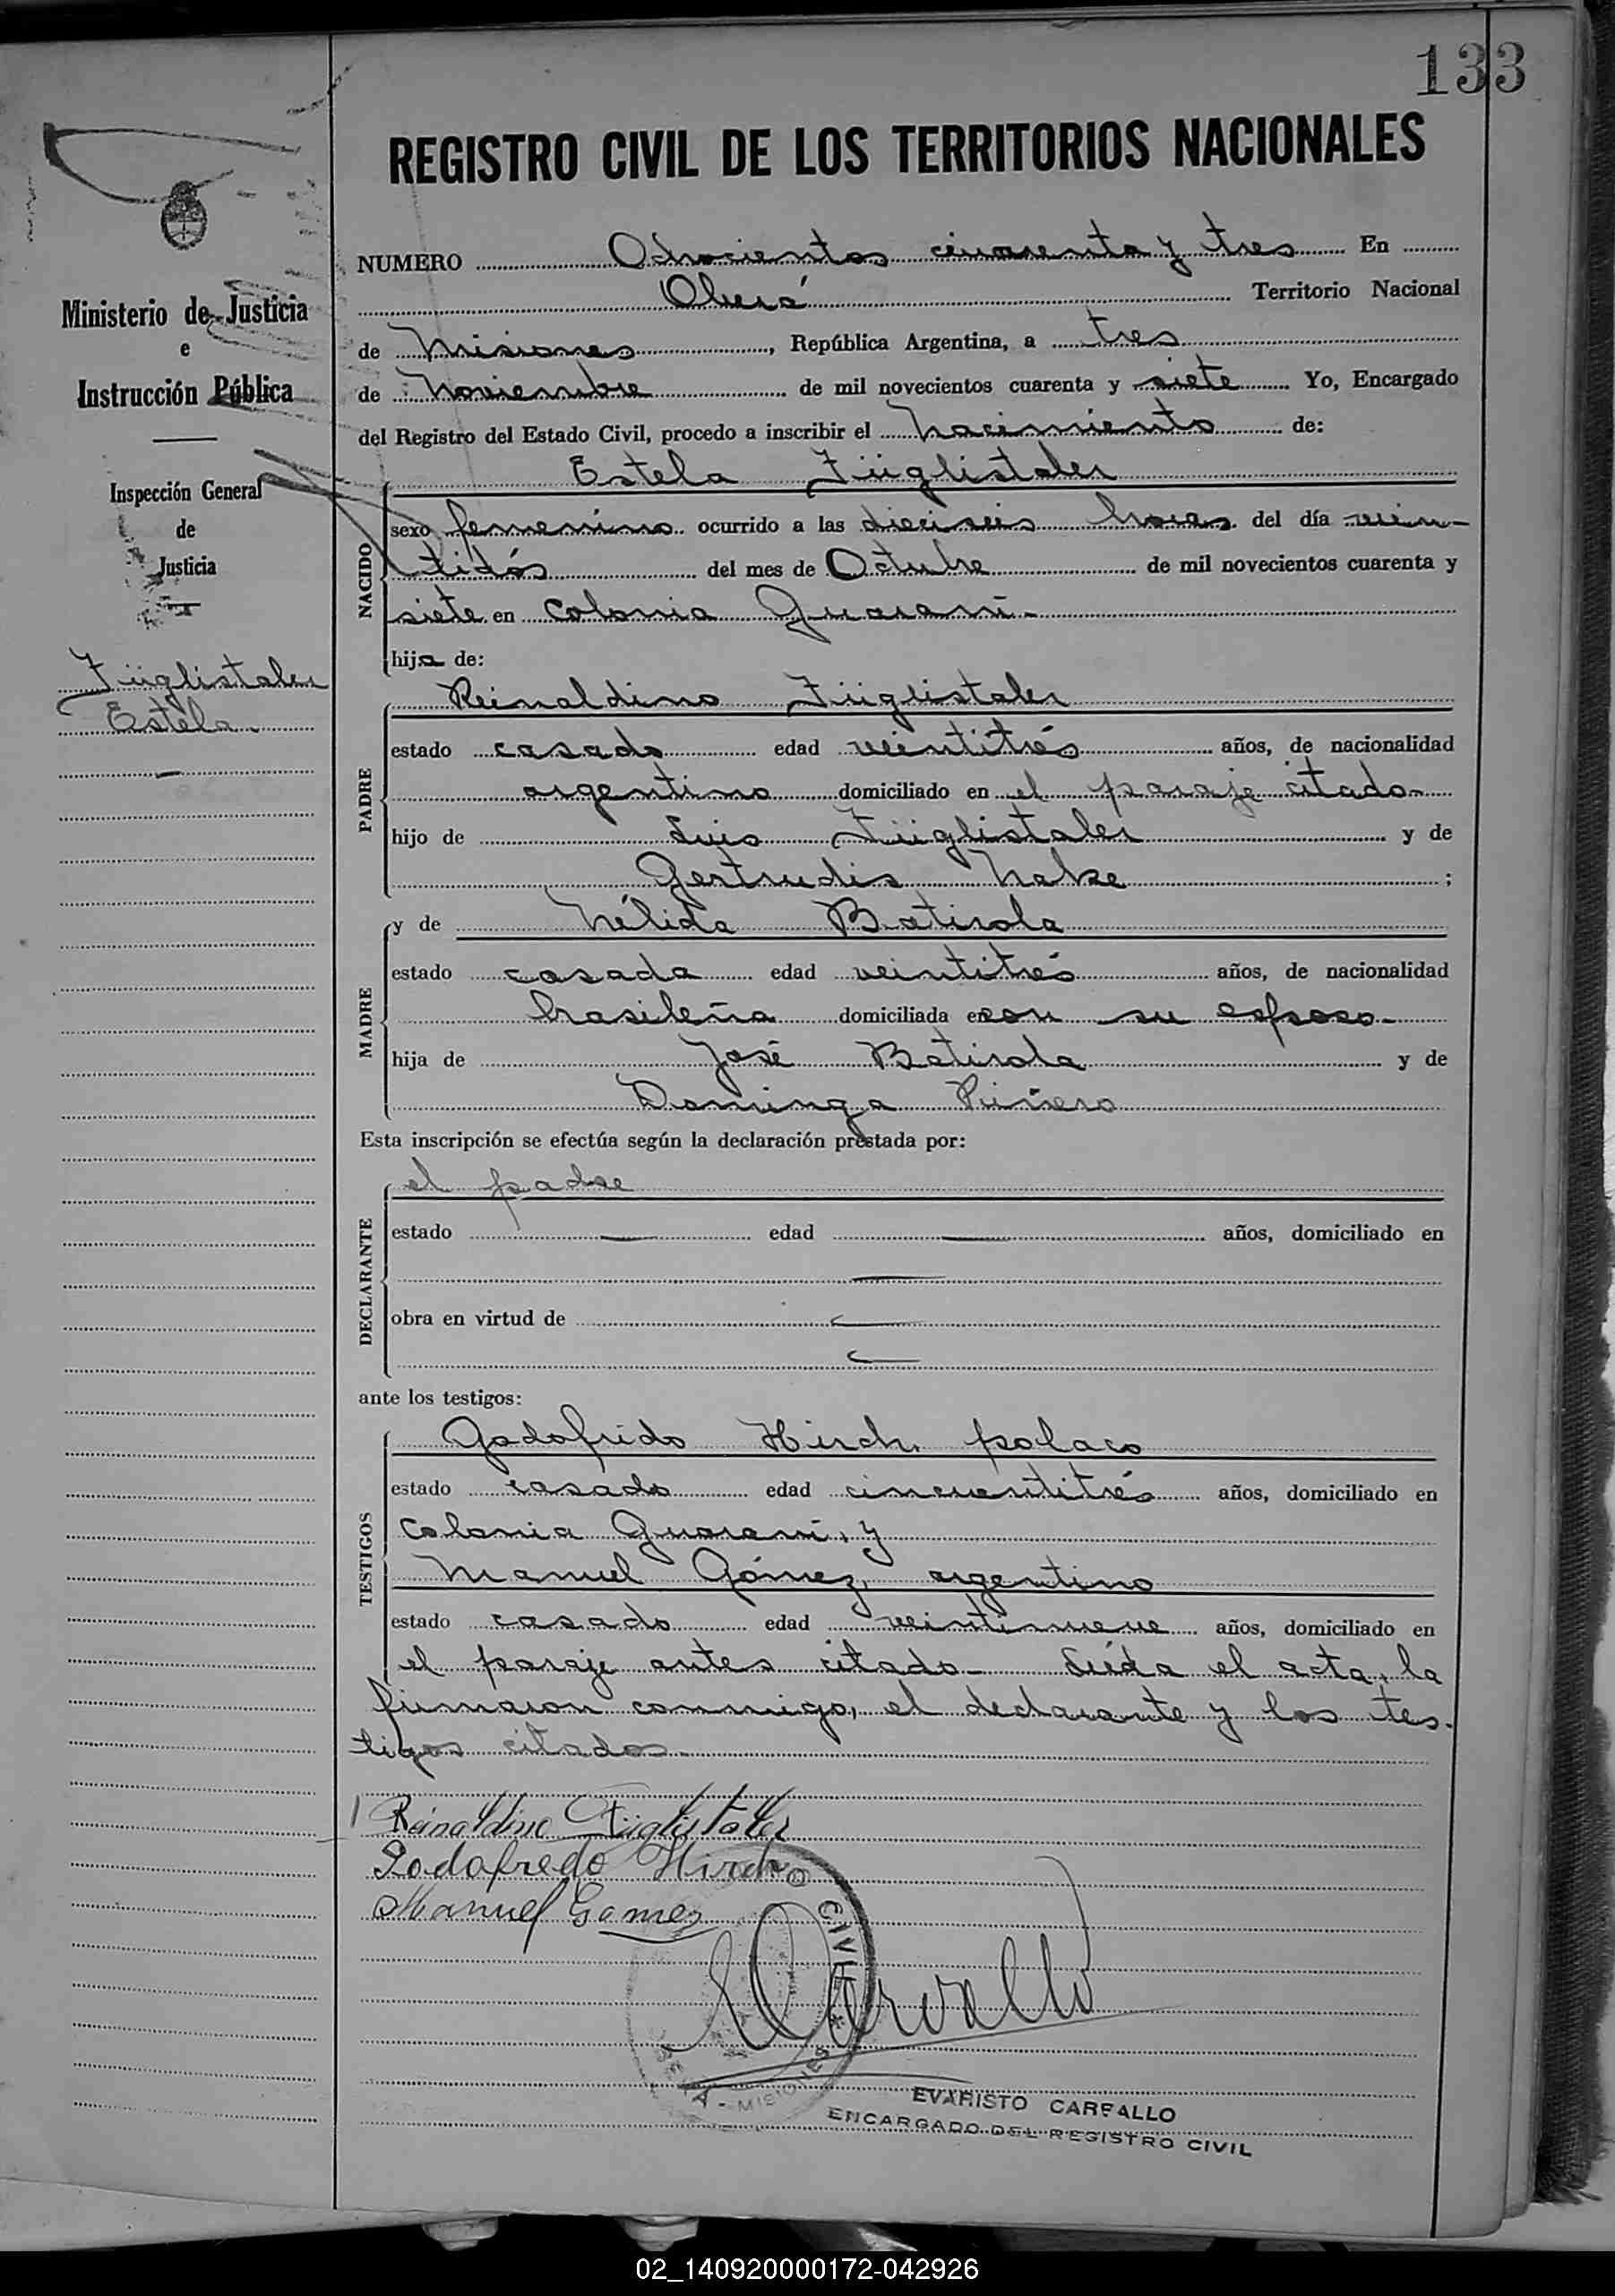 133
REGISTRO CIVIL DE LOS TERRITORIOS NACIONALES
NUMERO Ochocientos cincuenta y tres En
Oberá Territorio Nacional
de Misiones, República Argentina, a tres
de Noviembre de mil novecientos cuarenta y siete Yo, Encargado
del Registro del Estado Civil, procedo a inscribir el nacimiento de:
Estela Füglistaler
NACIDO
sexo femenino ocurrido a las dieciseis horas del día vein-
tidós del mes de Octubre de mil novecientos cuarenta y
siete en Colonia Guaraní-
hija de:
Reinaldino Füglistaler
PADRE
estado casado edad veintitrés años, de nacionalidad
argentino domiciliado en el paraje citado-
hijo de Luis Füglistaler y de
Gertrudis Hake;
MADRE
y de Nélida Batirola
estado casada edad veintitrés años, de nacionalidad
brasileña domiciliada con su esposo-
hija de José Batirola y de
Dominga Piñero
Esta inscripción se efectúa según la declaración prestada por:
DECLARANTE
el padre
estado — edad — años, domiciliado en
—
obra en virtud de —
—
ante los testigos:
TESTIGOS
Godofrido Hirch, polaco
estado casado edad cincuentitrés años, domiciliado en
Colonia Guaraní, y
Manuel Gómez, argentino
estado casado edad veintinueve años, domiciliado en
el paraje antes citado- Leída el acta, la
firmaron conmigo, el declarante y los tes-
tigos citados-
Reinaldino Füglistaler
Godofredo Hirch
Manuel Gomez
Carvallo
CIVIL * MISIONES
EVARISTO CARVALLO
ENCARGADO DEL REGISTRO CIVIL
Ministerio de Justicia
e
Instrucción Pública
Inspección General
de
Justicia
Füglistaler
Estela
02_140920000172-042926